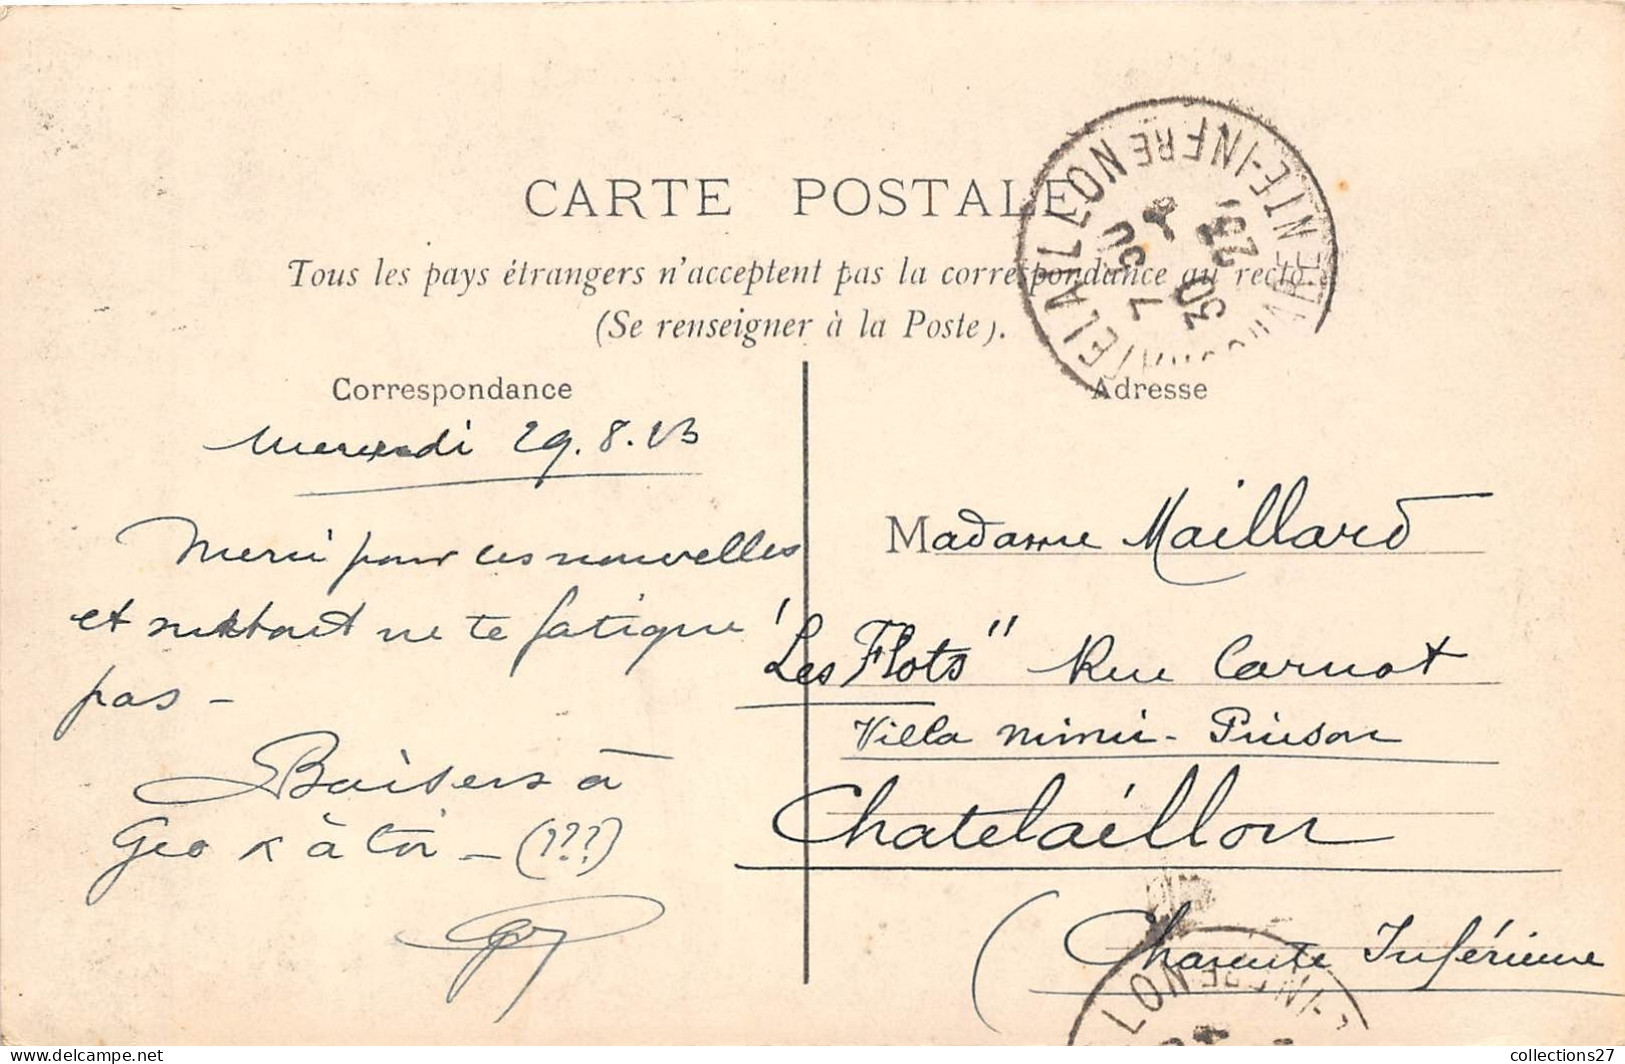 CARTE POSTALE
Tous les pays étrangers n'acceptent pas la correspondance au recto
(Se renseigner à la Poste).
Correspondance
Mercredi 29.8.23
Merci pour ces nouvelles
et surtout ne te fatigue
pas -
Baisers à
Geo & à toi - (???)
Adresse
Madame Maillard
"Les Flots" Rue Carnot
Villa Mimi-Pinson
Chatelaillon
(Charente Inférieure
CHATELAILLON CHARENTE-INFRE
7 30
30
-8
23
LON
INFRE
collections27